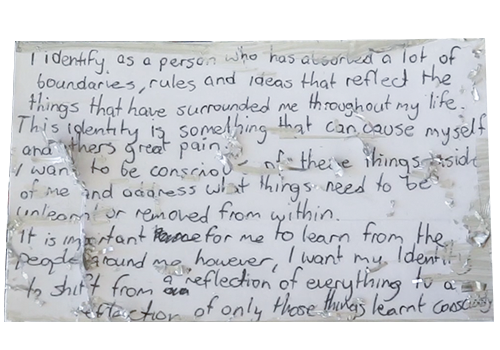 I identify as a person who has absorbed a lot of
boundaries, rules and ideas that reflect the
things that have surrounded me throughout my life.
This identity is something that can cause myself
and others great pain.
I want to be conscious of these things inside
of me and address what things need to be
unlearnt or removed from within.
It is important for me to learn from the
people around me, however, I want my Identity
to shift from a reflection of everything to a
reflection of only those things learnt consciously